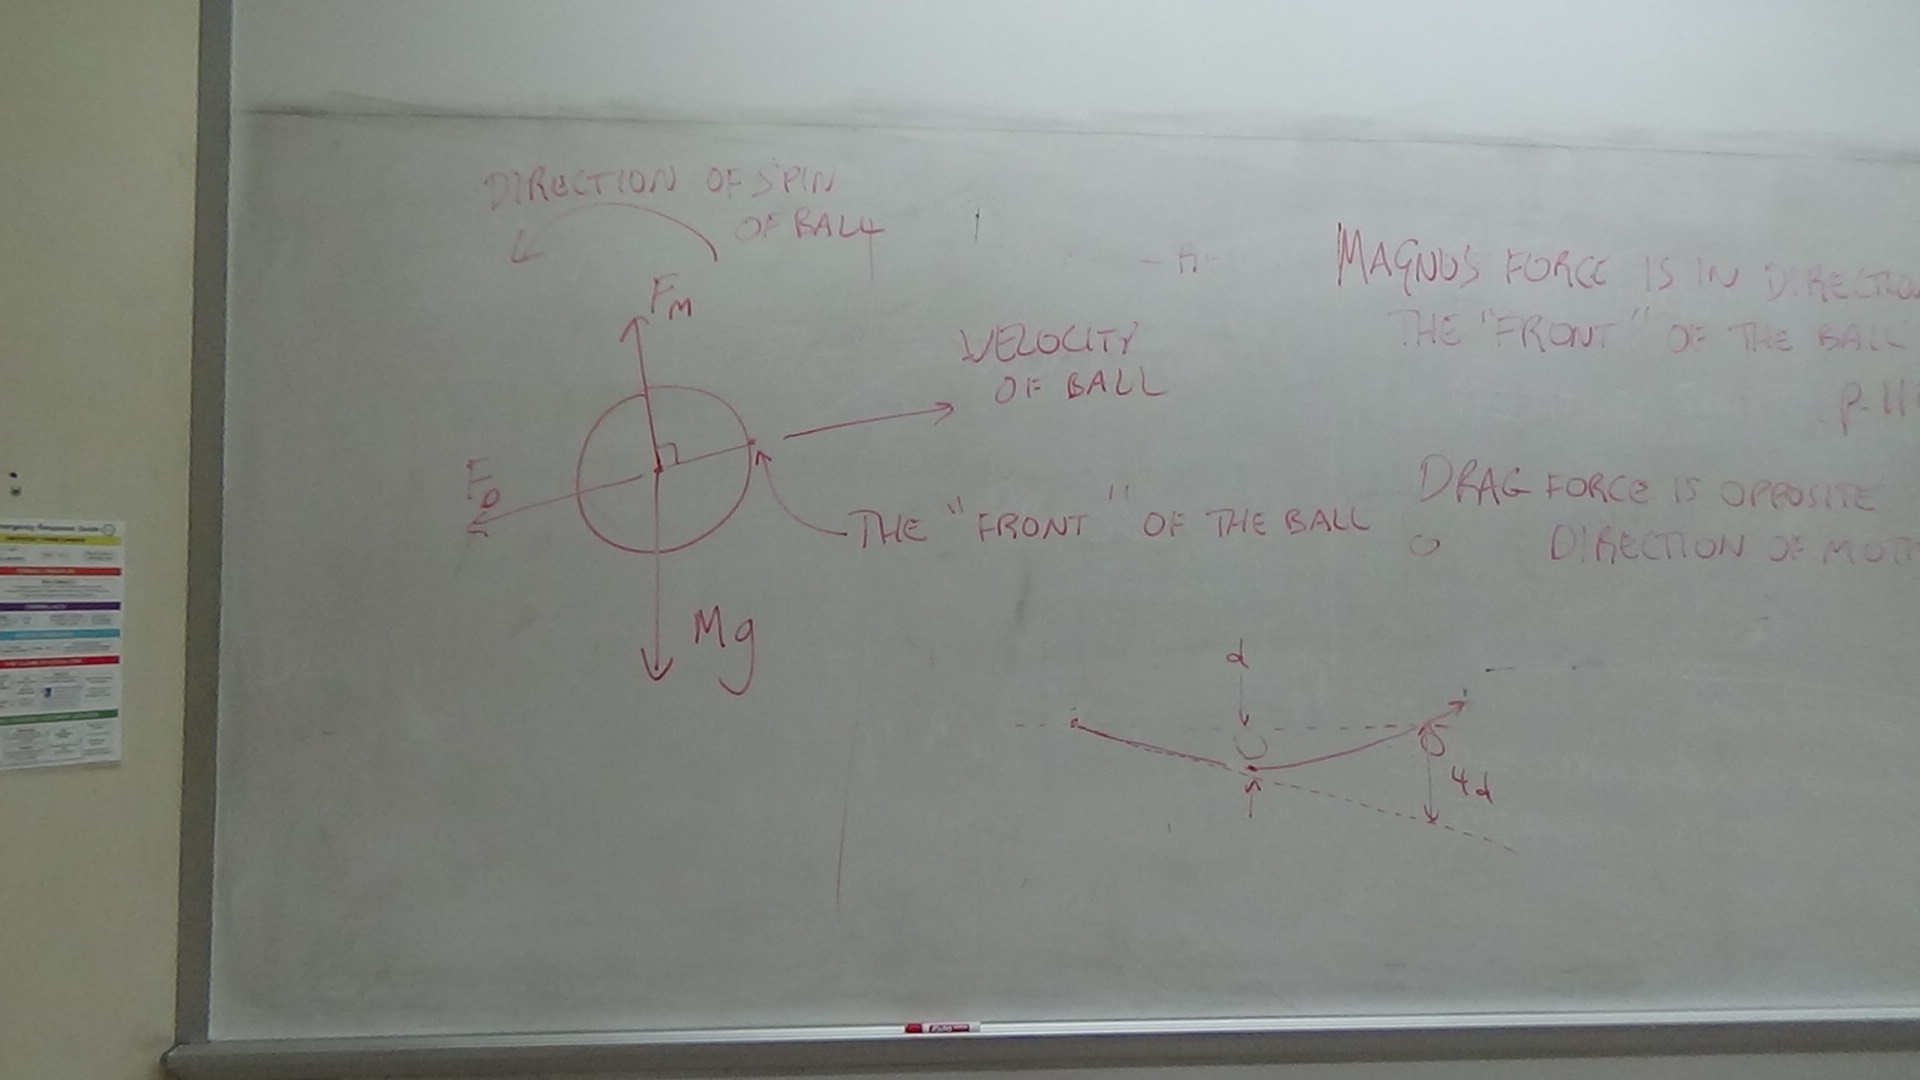 DIRECTION OF SPIN
OF BALL
F_M
VELOCITY
OF BALL
F_D
THE "FRONT" OF THE BALL
Mg
MAGNUS FORCE IS IN DIRECTIO
THE "FRONT" OF THE BALL
P. 11
DRAG FORCE IS OPPOSITE
DIRECTION OF MOT
d
4d